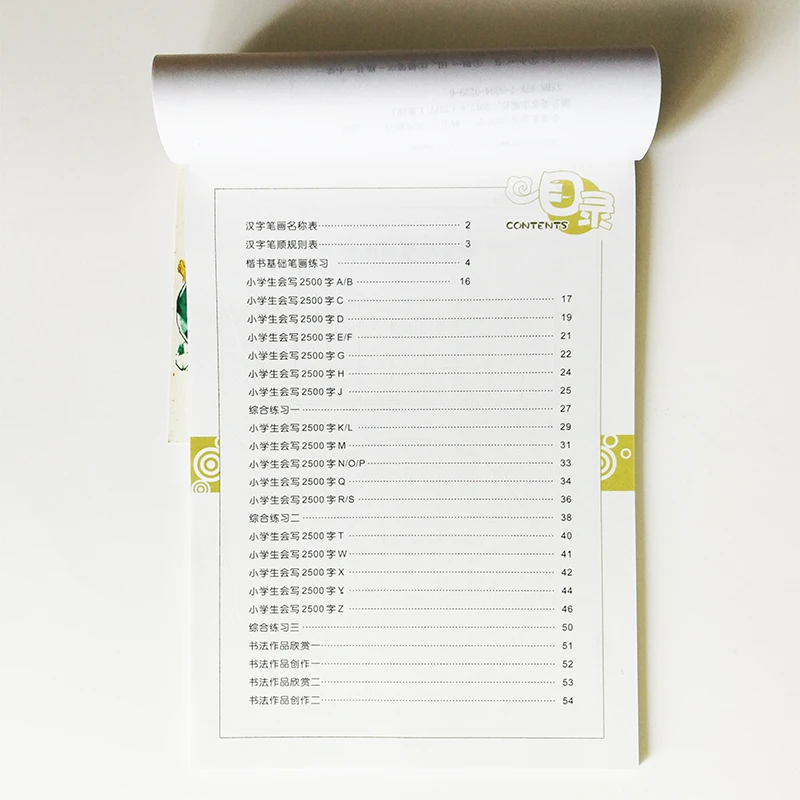 目录
CONTENTS
汉字笔画名称表 2
汉字笔顺规则表 3
楷书基础笔画练习 4
小学生会写2500字A/B 16
小学生会写2500字C 17
小学生会写2500字D 19
小学生会写2500字E/F 21
小学生会写2500字G 22
小学生会写2500字H 24
小学生会写2500字J 25
综合练习一 27
小学生会写2500字K/L 29
小学生会写2500字M 31
小学生会写2500字N/O/P 33
小学生会写2500字Q 34
小学生会写2500字R/S 36
综合练习二 38
小学生会写2500字T 40
小学生会写2500字W 41
小学生会写2500字X 42
小学生会写2500字Y 44
小学生会写2500字Z 46
综合练习三 50
书法作品欣赏一 51
书法作品创作一 52
书法作品欣赏二 53
书法作品创作二 54